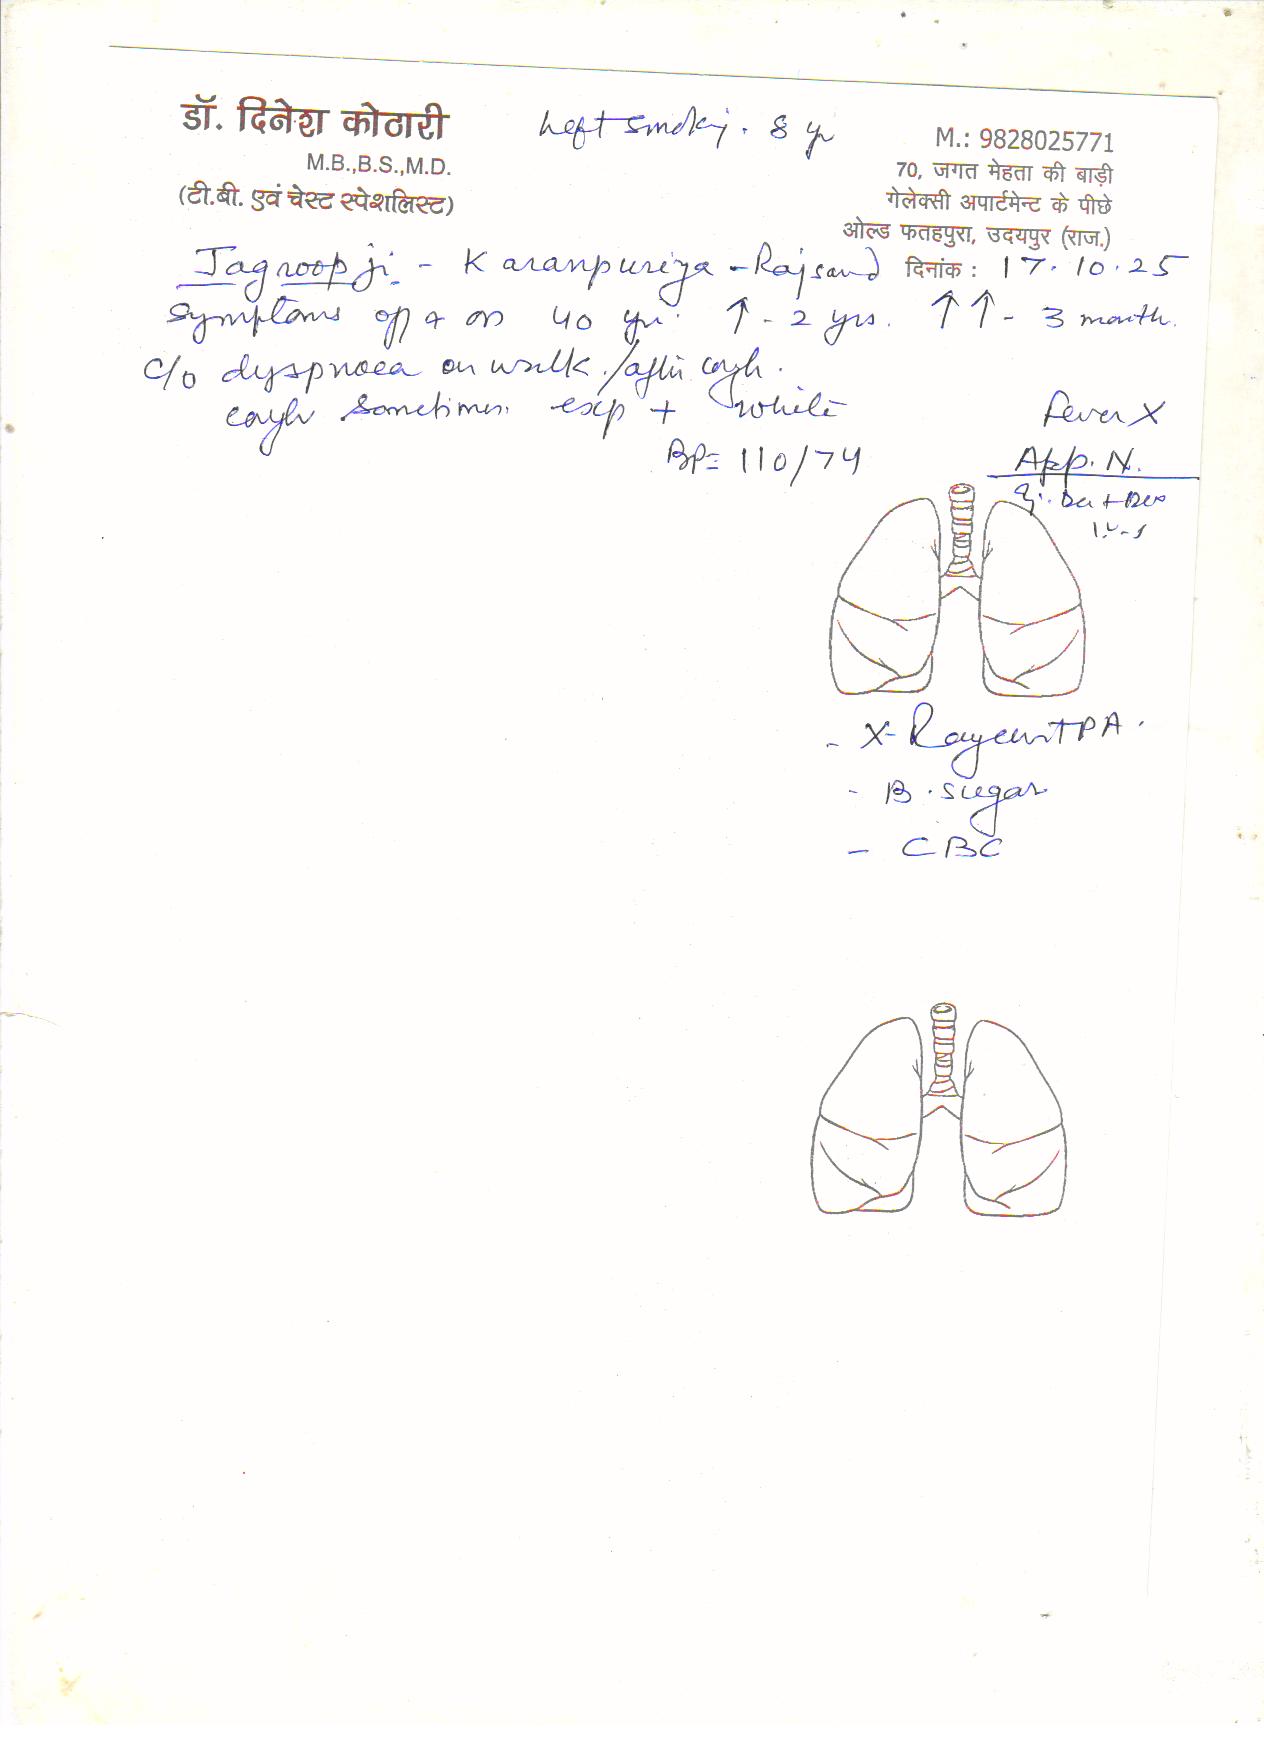 डॉ. दिनेश कोठारी
M.B.,B.S.,M.D.
(टी.बी. एवं चेस्ट स्पेशलिस्ट)
Left smokj. 8 yr
M.: 9828025771
70, जगत मेहता की बाड़ी
गेलेक्सी अपार्टमेन्ट के पीछे
ओल्ड फतहपुरा, उदयपुर (राज.)
Jagroop ji - Karanpuriya - Rajsand दिनांक : 17.10.25
Symptoms off & on 40 yr. ↑ - 2 yrs. ↑↑ - 3 month.
C/o dyspnoea on walk./after cough.
cough sometimes. exp + white
Fever X
BP= 110/74
App. N.
- X-Ray chest PA.
- B. sugar
- CBC